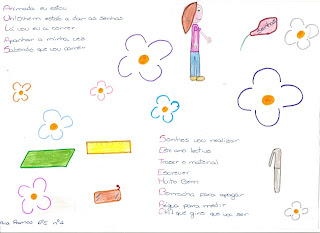 Animada eu estou
Uhl! Ontem estab a dar as senhas
Lá vou eu a correr
Apanhar a minha vez
Sabendo que vou correr
Sonhos vou realizar
Este ano lectivo
Trazer o material
Escrever
Muito bem
Borracha para apagar
Régua para medir
que giro que vai ser
Ana Ramos 6ºE nº2